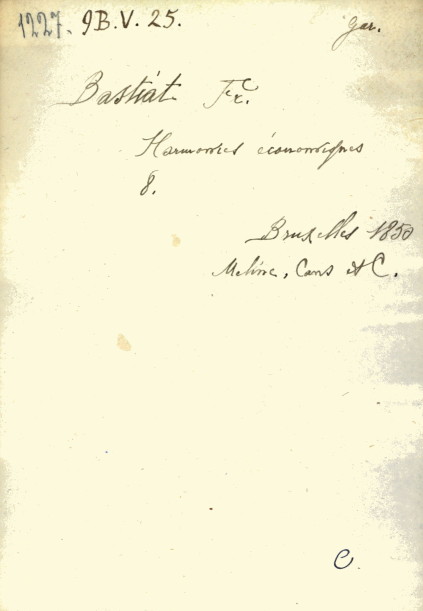 1227. 9B.V. 25. Gar.
Bastiát Fr.
Harmonies économiques
8.
Bruxelles 1850
Meline, Cans et C.
C.